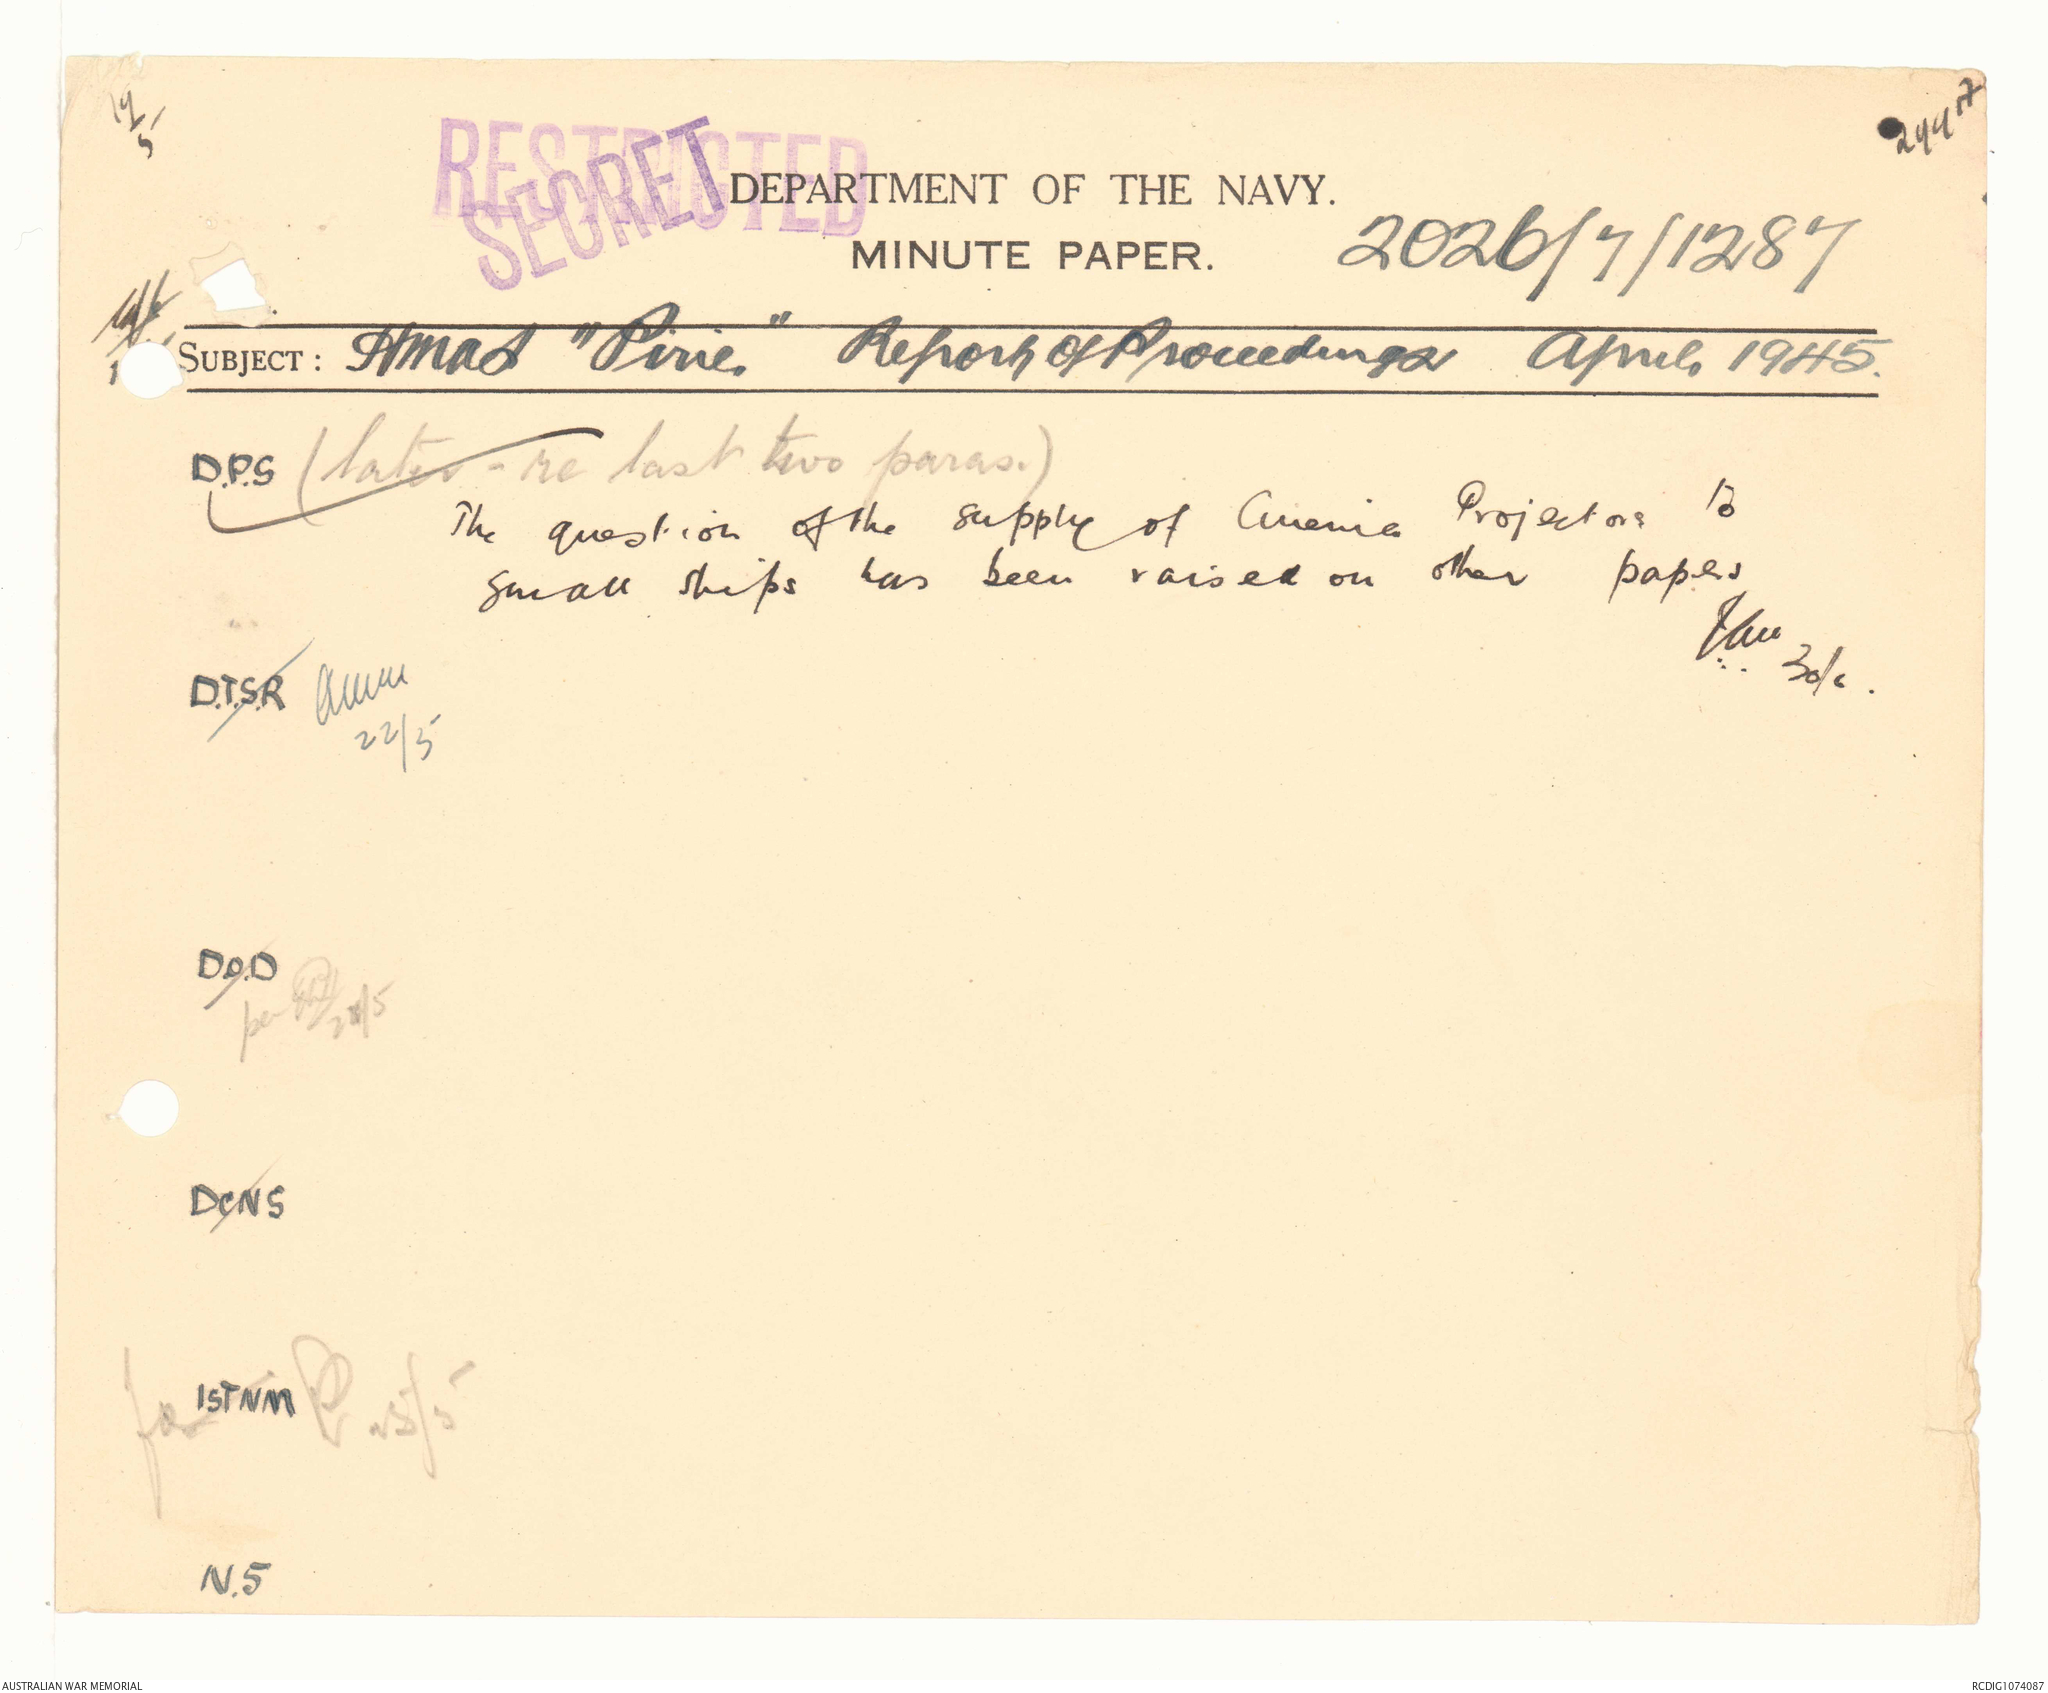 19/5
RESTRICTED
SECRET
DEPARTMENT OF THE NAVY.
MINUTE PAPER.
2026/7/1287
SUBJECT: HMAS "Pirie." Report of Proceedings April 1945.
D.P.S (later - re last two paras.)
The question of the supply of Cinema Projectors to
small ships has been raised on other papers
30/6.
D.T.S.R
22/5
D.O.D
per
DCNS
for 1ST NM 25/5
N.5
AUSTRALIAN WAR MEMORIAL
RCDIG1074087